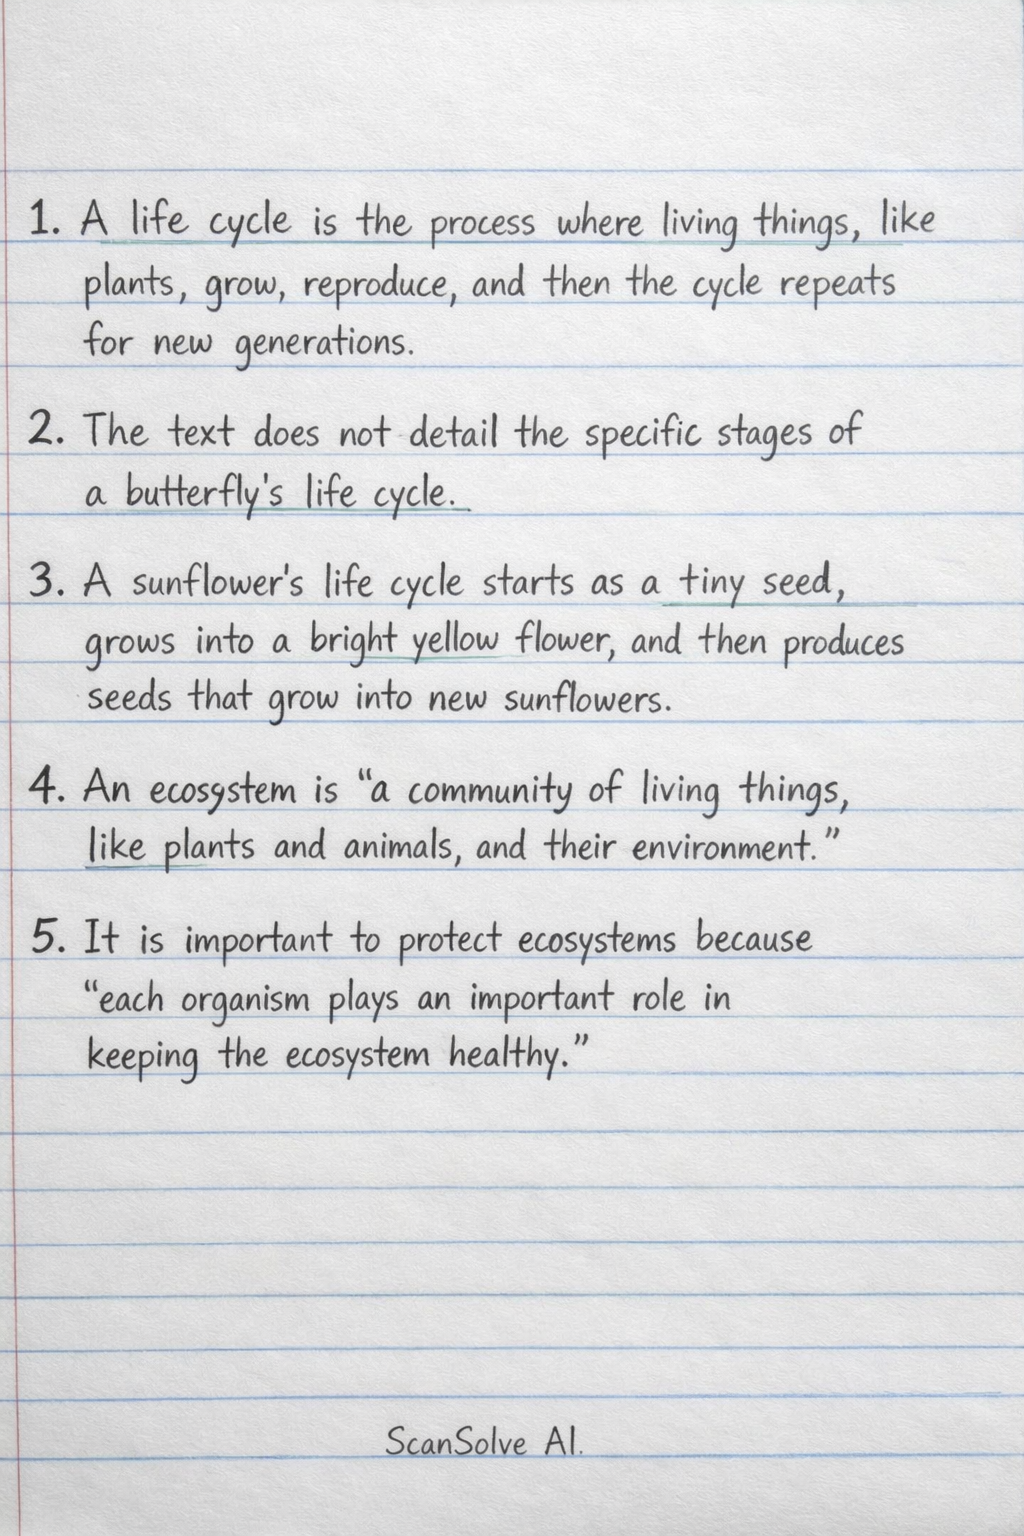 1. A life cycle is the process where living things, like
plants, grow, reproduce, and then the cycle repeats
for new generations.
2. The text does not detail the specific stages of
a butterfly's life cycle.
3. A sunflower's life cycle starts as a tiny seed,
grows into a bright yellow flower, and then produces
seeds that grow into new sunflowers.
4. An ecosystem is “a community of living things,
like plants and animals, and their environment.”
5. It is important to protect ecosystems because
“each organism plays an important role in
keeping the ecosystem healthy.”
ScanSolve AI.